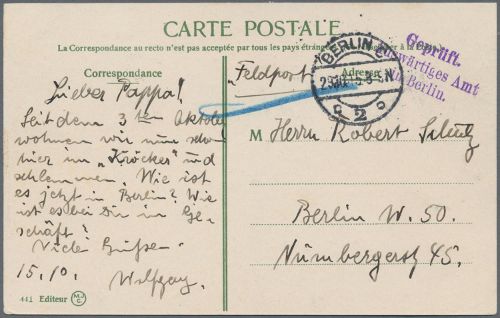 CARTE POSTALE
La Correspondance au recto n'est pas acceptée par tous les pays étrangers
Correspondance
Adresse
"Feldpost"
BERLIN
C 2
Geprüft.
Auswärtiges Amt
Berlin.
Lieber Pappa!
Seit dem 3ten Oktober
wohnen wir nun schon
hier im "Kröcker" und
schlemmen. Wie ist
es jetzt in Berlin? Wie
ist es bei Dir im Ge-
schäft?
Viele Grüße.
15.10. Wolfgang.
M Herrn Robert
Berlin W. 50.
Nürnbergerst 45.
441 Editeur M.J.C.